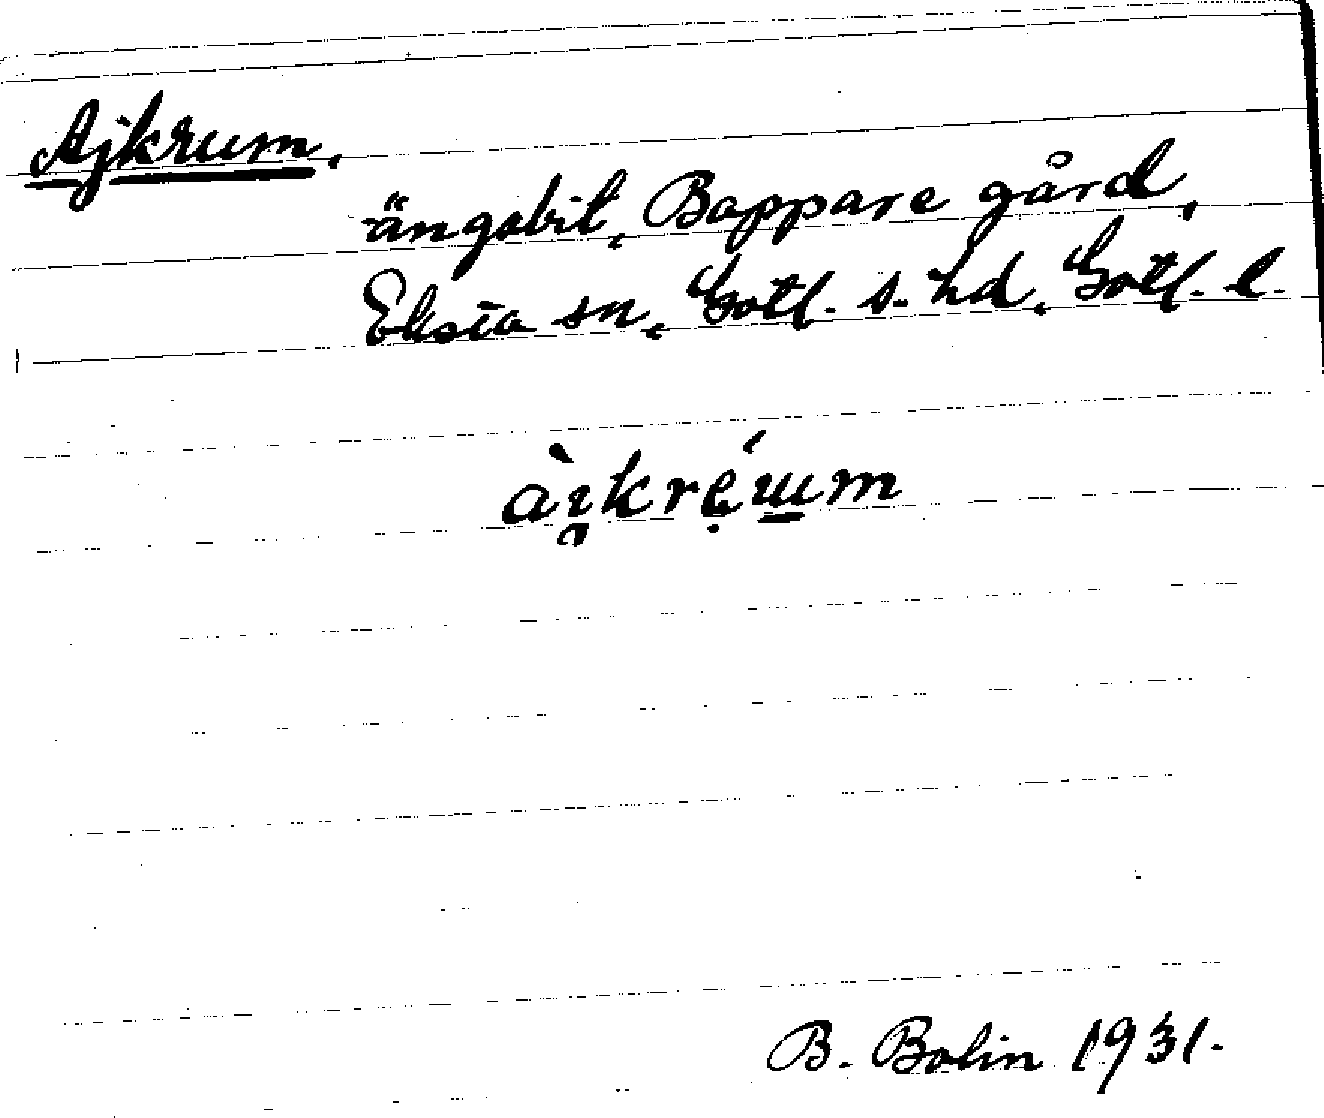 Ajkrum,
ängsbit, Bappare gård,
Eksta sn, Gotl. s. hd, Gotl. l.
B. Bolin 1931.